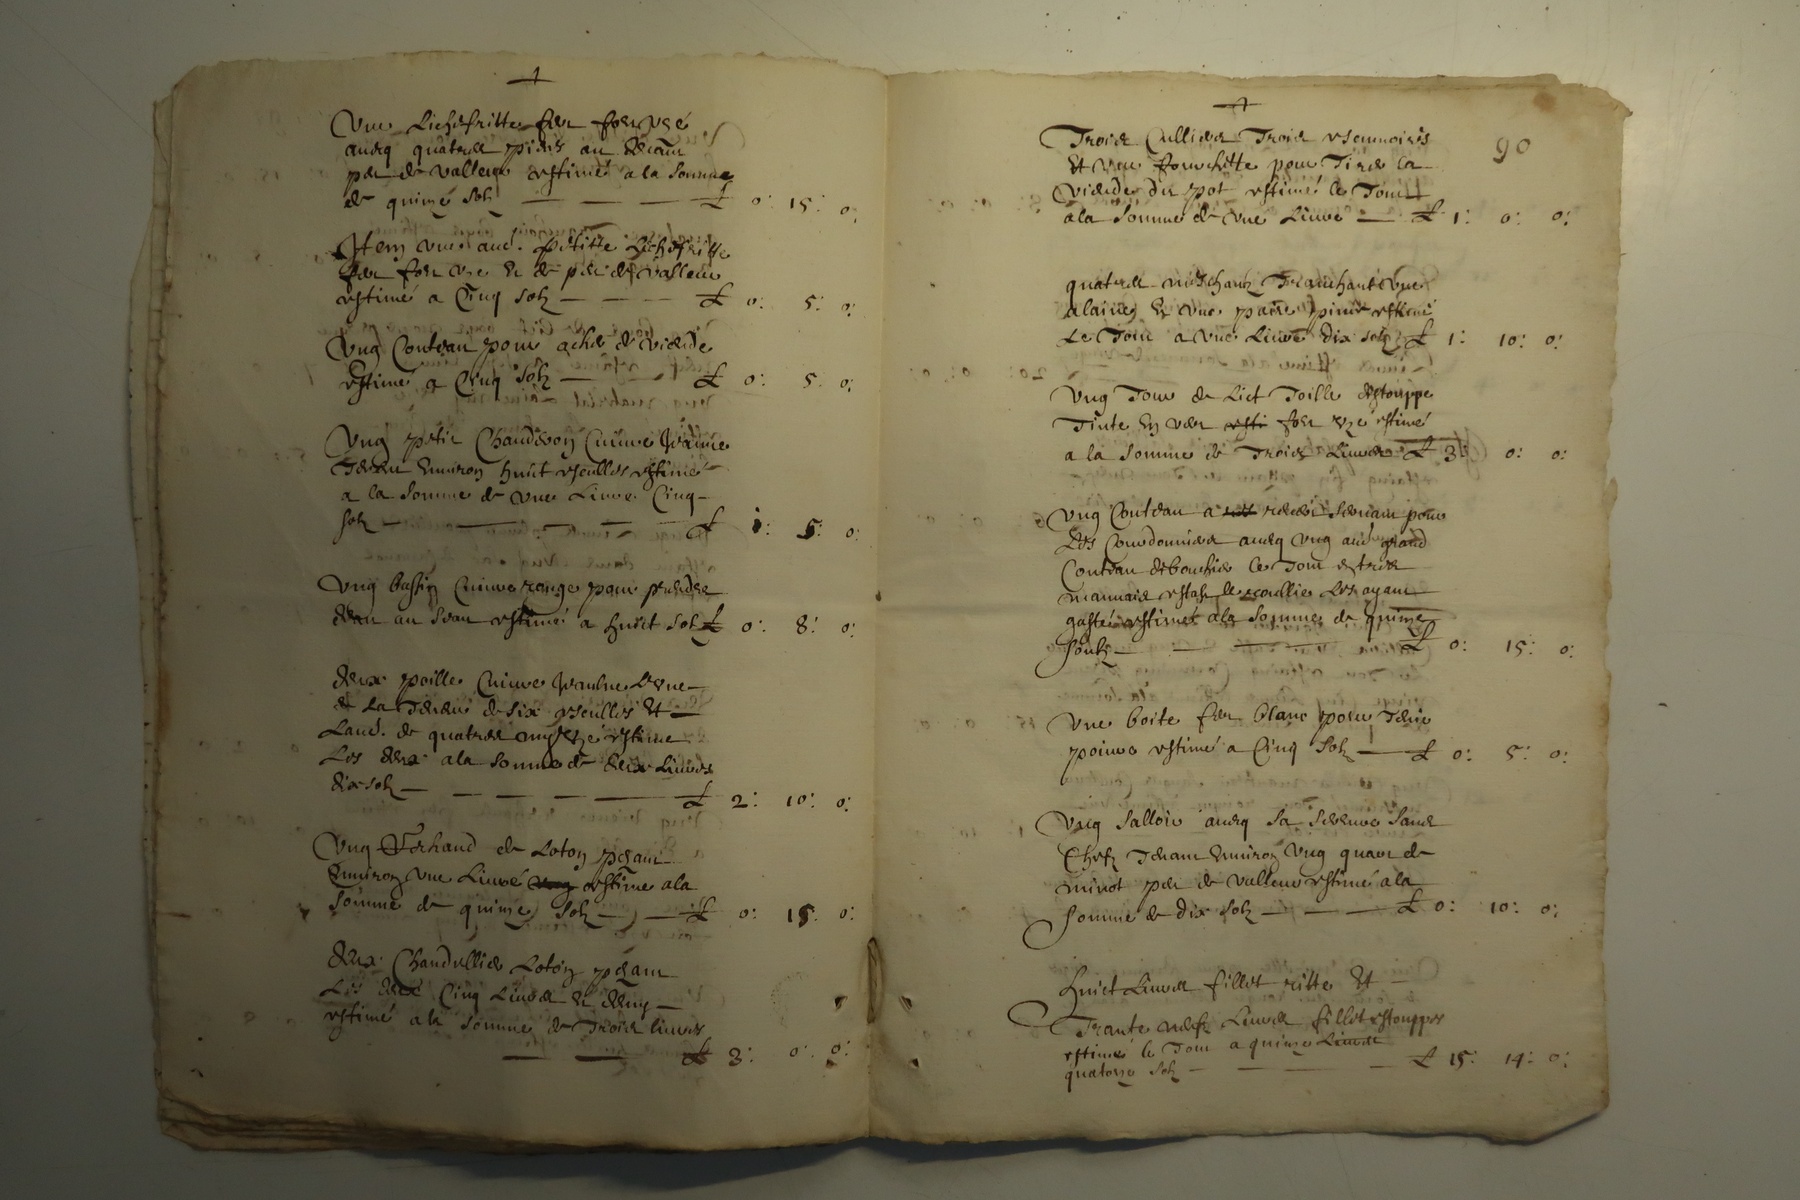 Une Lichefritte fer fort uzé
avecq quatre pieds au devant
peu de valleur estimé a la somme
de quinze solz £ 0: 15: 0:
Item une aut. petitte Lichefritte
fer fort uze et de peu de valleur
estimé a Cinq solz £ 0: 5: 0:
Ung Couteau pour acher de viande
estimé a Cinq solz £ 0: 5: 0:
Ung petit Chauderon Cuivre Jeaune
tenant Environ huict escuelles estimé
a la somme de une Livre Cinq
solz £ 1: 5: 0:
Ung bassin Cuivre rouge pour prendre
deau au seau estimé a huict solz £ 0: 8: 0:
deux poille Cuivre Jeaulne Lune
de La teneur de six escuelles Et
Laut. de quatre my uze estimé
Les deux a la somme de deux Livres
dix solz £ 2: 10: 0:
Ung de Loton pezant
Environ une Livre estimé a la
somme de quinze solz £ 0: 15: 0:
deux Chandellier Loton pezant
Les deux Cinq Livres et demy
estimé a la somme de Trois livres
£ 3: 0: 0:
90
Trois Cullier Trois
Et une fourchette pour Tirer la
viande du pot estimé le Tout
a la somme de une Livre £ 1: 0: 0:
quatre meschantz Tranchantz une
alaine et une estimé
Le Tout a une Livre dix solz £ 1: 10: 0:
Ung Tour de Lict Toille destouppe
Tinte En vert fort uze estimé
a la somme de Trois Livres £ 3: 0: 0:
Ung Couteau a servant pour
Les Courdonnier avecq ung aut grand
Couteau de bouchier le Tout
mauvais estat le Les ayant
gasté estimés a la somme de quinze
soulz £ 0: 15: 0:
Une boite fer blanc pour Tenir
poivre estimé a Cinq solz £ 0: 5: 0:
Ung salloir avecq sa serrure sans
Clefz Tenant Environ Ung quart de
minot peu de valleur estimé a la
somme de dix solz £ 0: 10: 0:
huict Livres fillet ritte Et
Trante neufz Livres fillet estouppes
estimé le Tout a quinze Livres
quatorze solz £ 15: 14: 0: